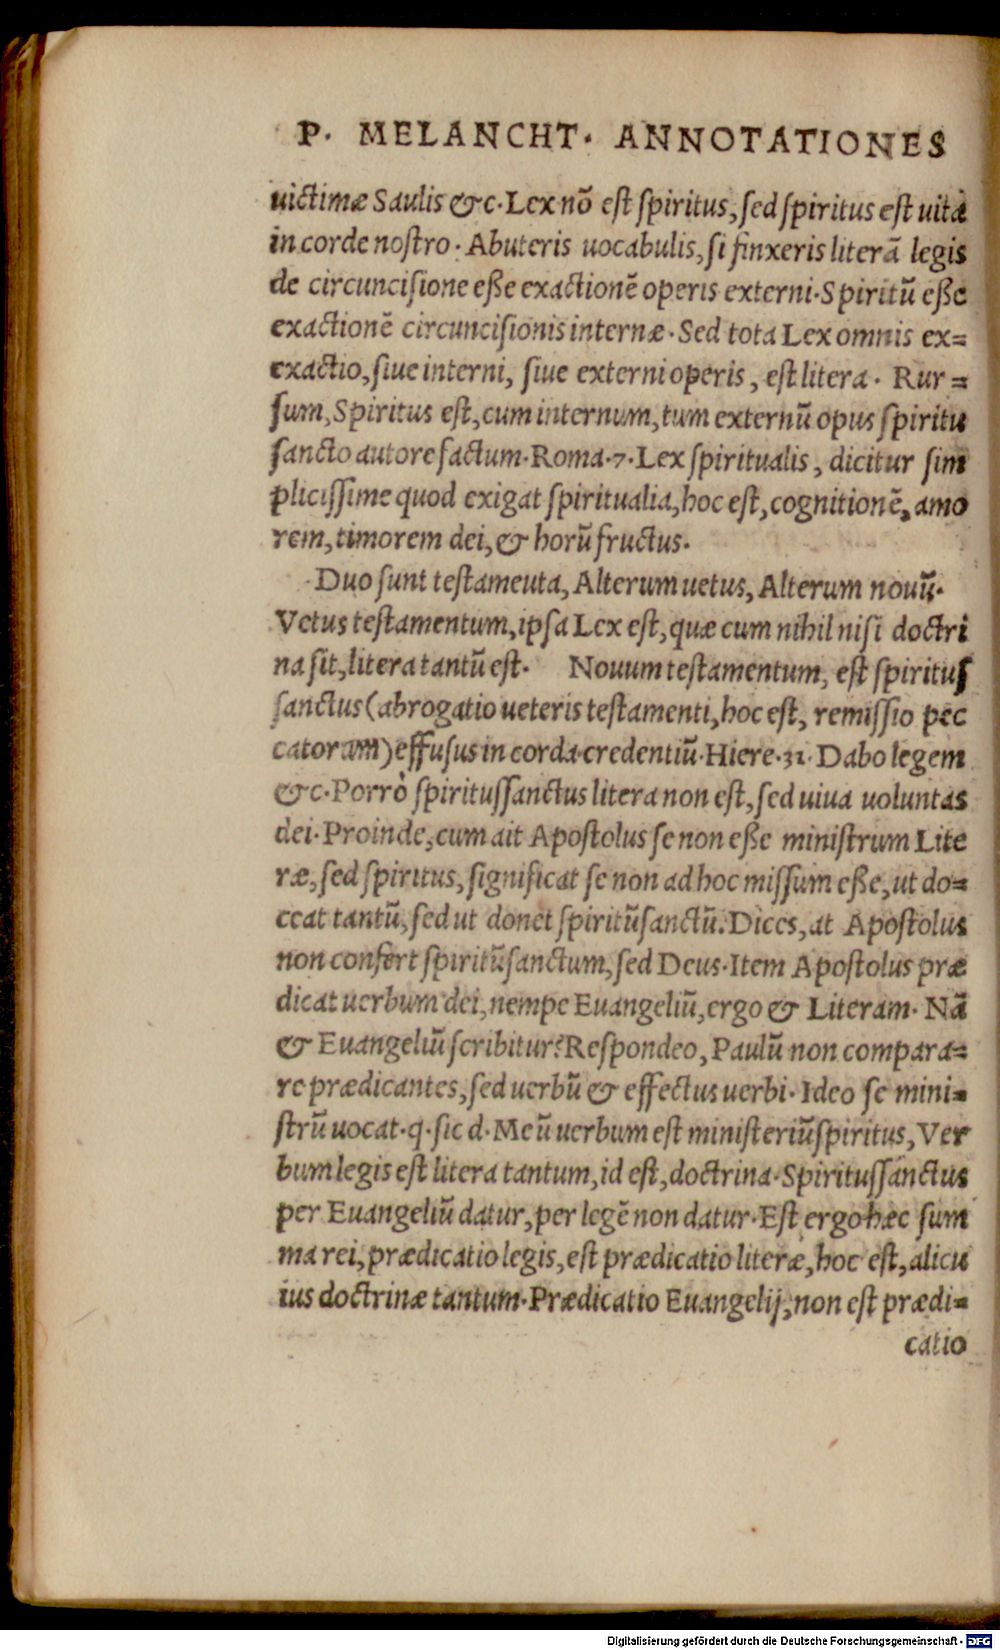 P. MELANCHT. ANNOTATIONES
uictimæ Saulis &c. Lex nõ est spiritus, sed spiritus est uita
in corde nostro. Abuteris uocabulis, si finxeris literã legis
de circuncisione eße exactionẽ operis externi. Spiritũ eße
exactionẽ circuncisionis internæ. Sed tota Lex omnis ex=
exactio, siue interni, siue externi operis, est litera. Rur=
sum, Spiritus est, cum internum, tum externũ opus spiritu
sancto autore factum. Roma. 7. Lex spiritualis, dicitur sim
plicissime quod exigat spiritualia, hoc est, cognitionẽ, amo
rem, timorem dei, & horũ fructus.
Duo sunt testameuta, Alterum uetus, Alterum nouũ.
Vetus testamentum, ipsa Lex est, quæ cum nihil nisi doctri
na sit, litera tantũ est. Nouum testamentum, est spiritus
sanctus (abrogatio ueteris testamenti, hoc est, remissio pec
catoram) effusus in corda credentiũ. Hiere. 31. Dabo legem
&c. Porrò spiritussanctus litera non est, sed uiua uoluntas
dei. Proinde, cum ait Apostolus se non eße ministrum Lite
ræ, sed spiritus, significat se non ad hoc missum eße, ut do=
ceat tantũ, sed ut donet spiritũsanctũ. Dices, at Apostolus
non confert spiritũsanctum, sed Deus. Item Apostolus præ
dicat uerbum dei, nempe Euangeliũ, ergo & Literam. Nã
& Euangeliũ scribitur? Respondeo, Paulũ non compara=
re prædicantes, sed uerbũ & effectus uerbi. Ideo se mini=
strũ uocat. q. sic d. Meũ uerbum est ministeriũspiritus, Ver
bum legis est litera tantum, id est, doctrina. Spiritussanctus
per Euangeliũ datur, per legẽ non datur. Est ergo hæc sum
ma rei, prædicatio legis, est prædicatio literæ, hoc est, alicu
ius doctrinæ tantum. Prædicatio Euangelij, non est prædi=
catio
Digitalisierung gefördert durch die Deutsche Forschungsgemeinschaft - DFG